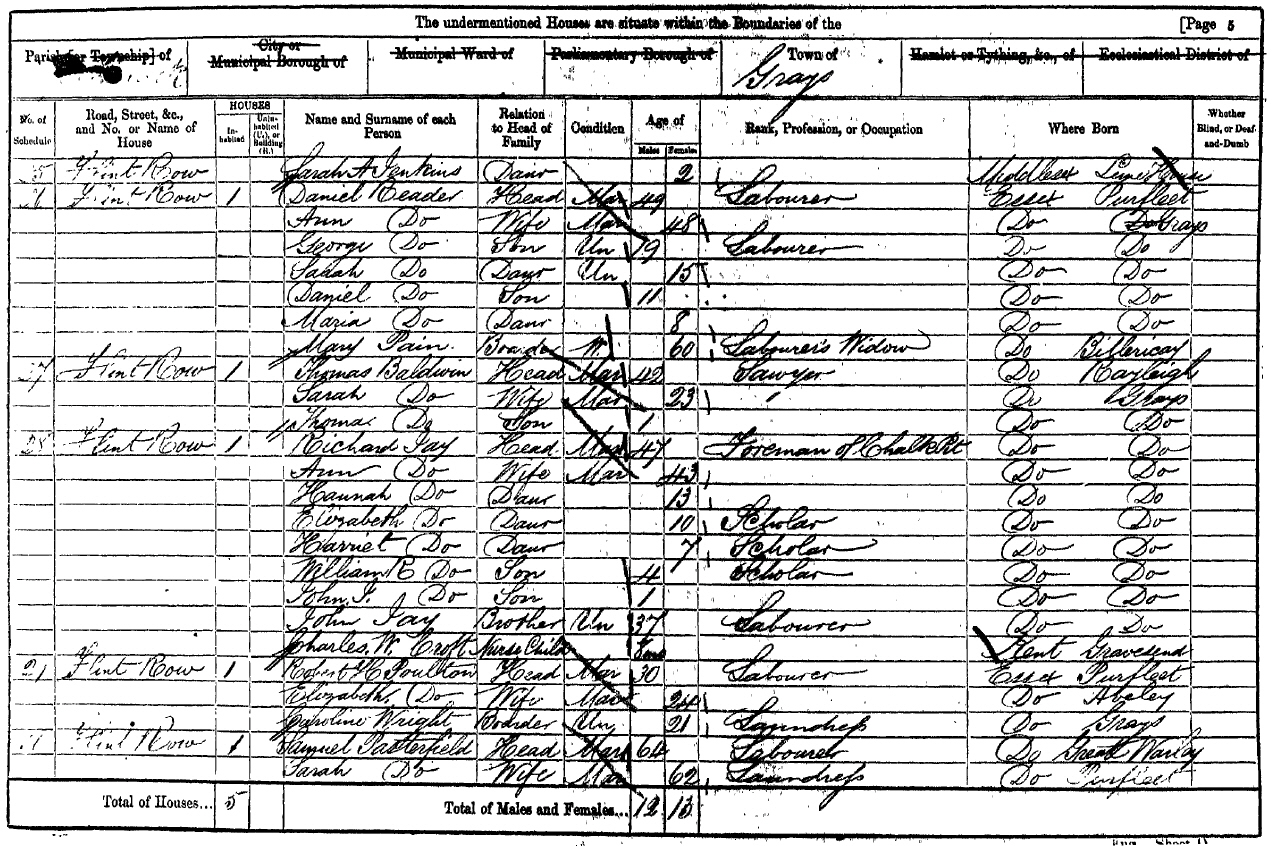 The undermentioned Houses are situate within the Boundaries of the [Page 5
Parish [or Township] of City or Municipal Borough of Municipal Ward of Parliamentary Borough of Town of Hamlet or Tything, &c., of Ecclesiastical District of
Grays
No. of Schedule Road, Street, &c., and No. or Name of House HOUSES Inhabited Uninhabited (U.), or Building (B.) Name and Surname of each Person Relation to Head of Family Condition Age of Males Females Rank, Profession, or Occupation Where Born Whether Blind, or Deaf-and-Dumb
Flint Row Sarah A Jenkins Daur 2 Middlesex Lime House
Flint Row 1 Daniel Reader Head Mar 49 Labourer Essex Purfleet
Ann Do Wife Mar 48 Do Do Grays
George Do Son Un 19 Labourer Do Do
Sarah Do Daur Un 15 Do Do
Daniel Do Son 11 Do Do
Maria Do Daur 8 Do Do
Mary Pain Boarder W 60 Labourer's Widow Do Billericay
27 Flint Row 1 Thomas Baldwin Head Mar 42 Sawyer Do Rayleigh
Sarah Do Wife Mar 23 Do Grays
Thomas Do Son 1 Do Do
28 Flint Row 1 Richard Jay Head Mar 47 Foreman of Chalk Pit Do Do
Ann Do Wife Mar 43 Do Do
Hannah Do Daur 13 Do Do
Elizabeth Do Daur 10 Scholar Do Do
Harriet Do Daur 7 Scholar Do Do
William R Do Son 4 Scholar Do Do
John J. Do Son 1 Do Do
John Jay Brother Un 37 Labourer Do Do
Charles. W. Croft Nurse Child Kent Gravesend
Flint Row 1 Robert H Poulton Head Mar 30 Labourer Essex Purfleet
Elizabeth Do Wife Mar 24 Do Aveley
Caroline Wright Boarder Un 21 Laundress Do Grays
Flint Row 1 Samuel Patterfield Head Mar 64 Labourer Do Great Warley
Sarah Do Wife Mar 62 Laundress Do Purfleet
Total of Houses... 5 Total of Males and Females... 12 13